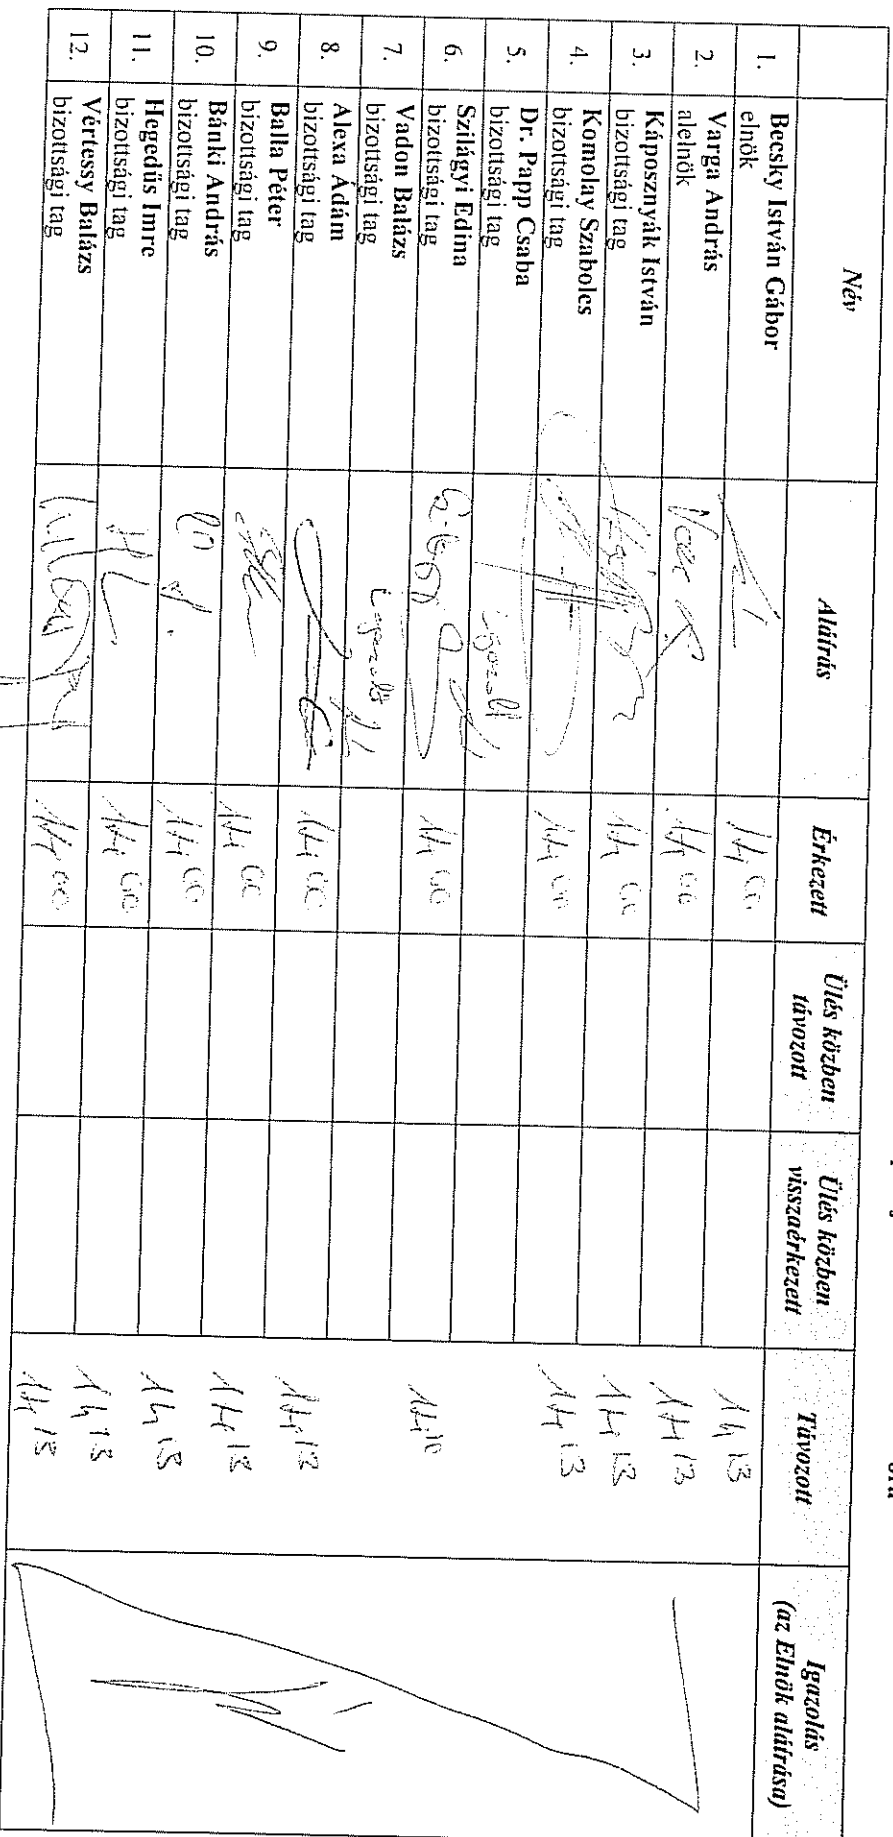 Név Aláírás Érkezett Ülés közben távozott Ülés közben visszaérkezett Távozott Igazolás (az Elnök aláírása)
1. Becsky István Gábor
elnök
14 00 14 13
2. Varga András
alelnök
14 00 14 13
3. Káposznyák István
bizottsági tag
14 00 14 13
4. Komolay Szabolcs
bizottsági tag
14 00 14 13
5. Dr. Papp Csaba
bizottsági tag
igazolt
6. Szilágyi Edina
bizottsági tag
14 00
7. Vadon Balázs
bizottsági tag
igazolt
8. Alexa Ádám
bizottsági tag
14 00 14 13
9. Balla Péter
bizottsági tag
14 00 14 13
10. Bánki András
bizottsági tag
14 00 14 13
11. Hegedűs Imre
bizottsági tag
14 00 14 13
12. Vértessy Balázs
bizottsági tag
14 00 14 13